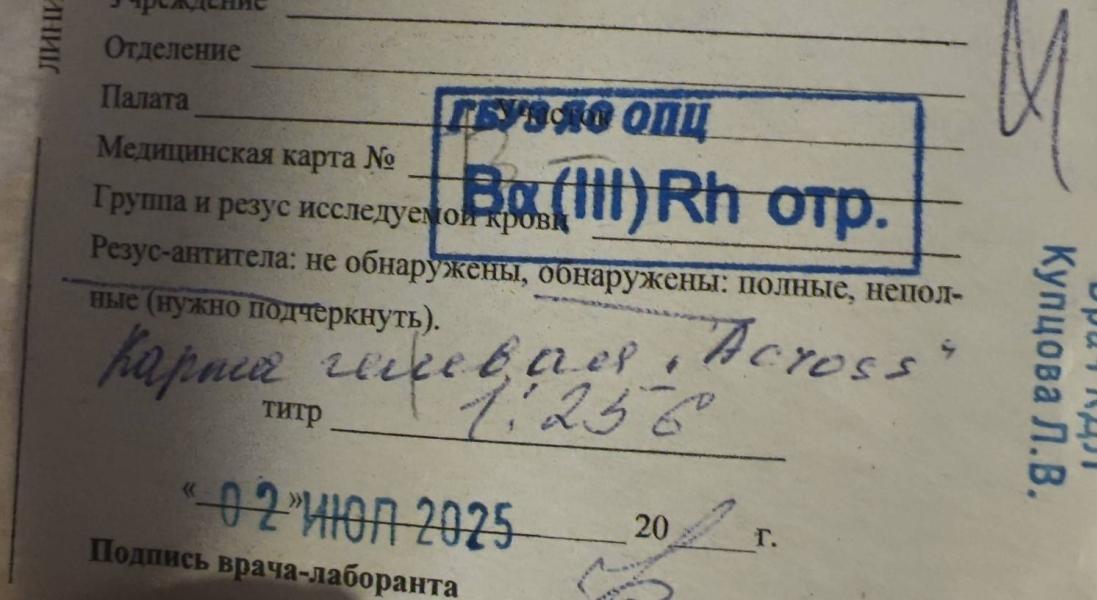 Учреждение
Отделение
Палата Участок
ГБУЗ ЛО ОПЦ
Медицинская карта №
Вα (III) Rh отр.
Группа и резус исследуемой крови
Резус-антитела: не обнаружены, обнаружены: полные, непол-
ные (нужно подчеркнуть).
Карта гелевая „Across“
титр 1:256
« 02 » ИЮЛ 2025 20 г.
Подпись врача-лаборанта
Купцова Л.В.